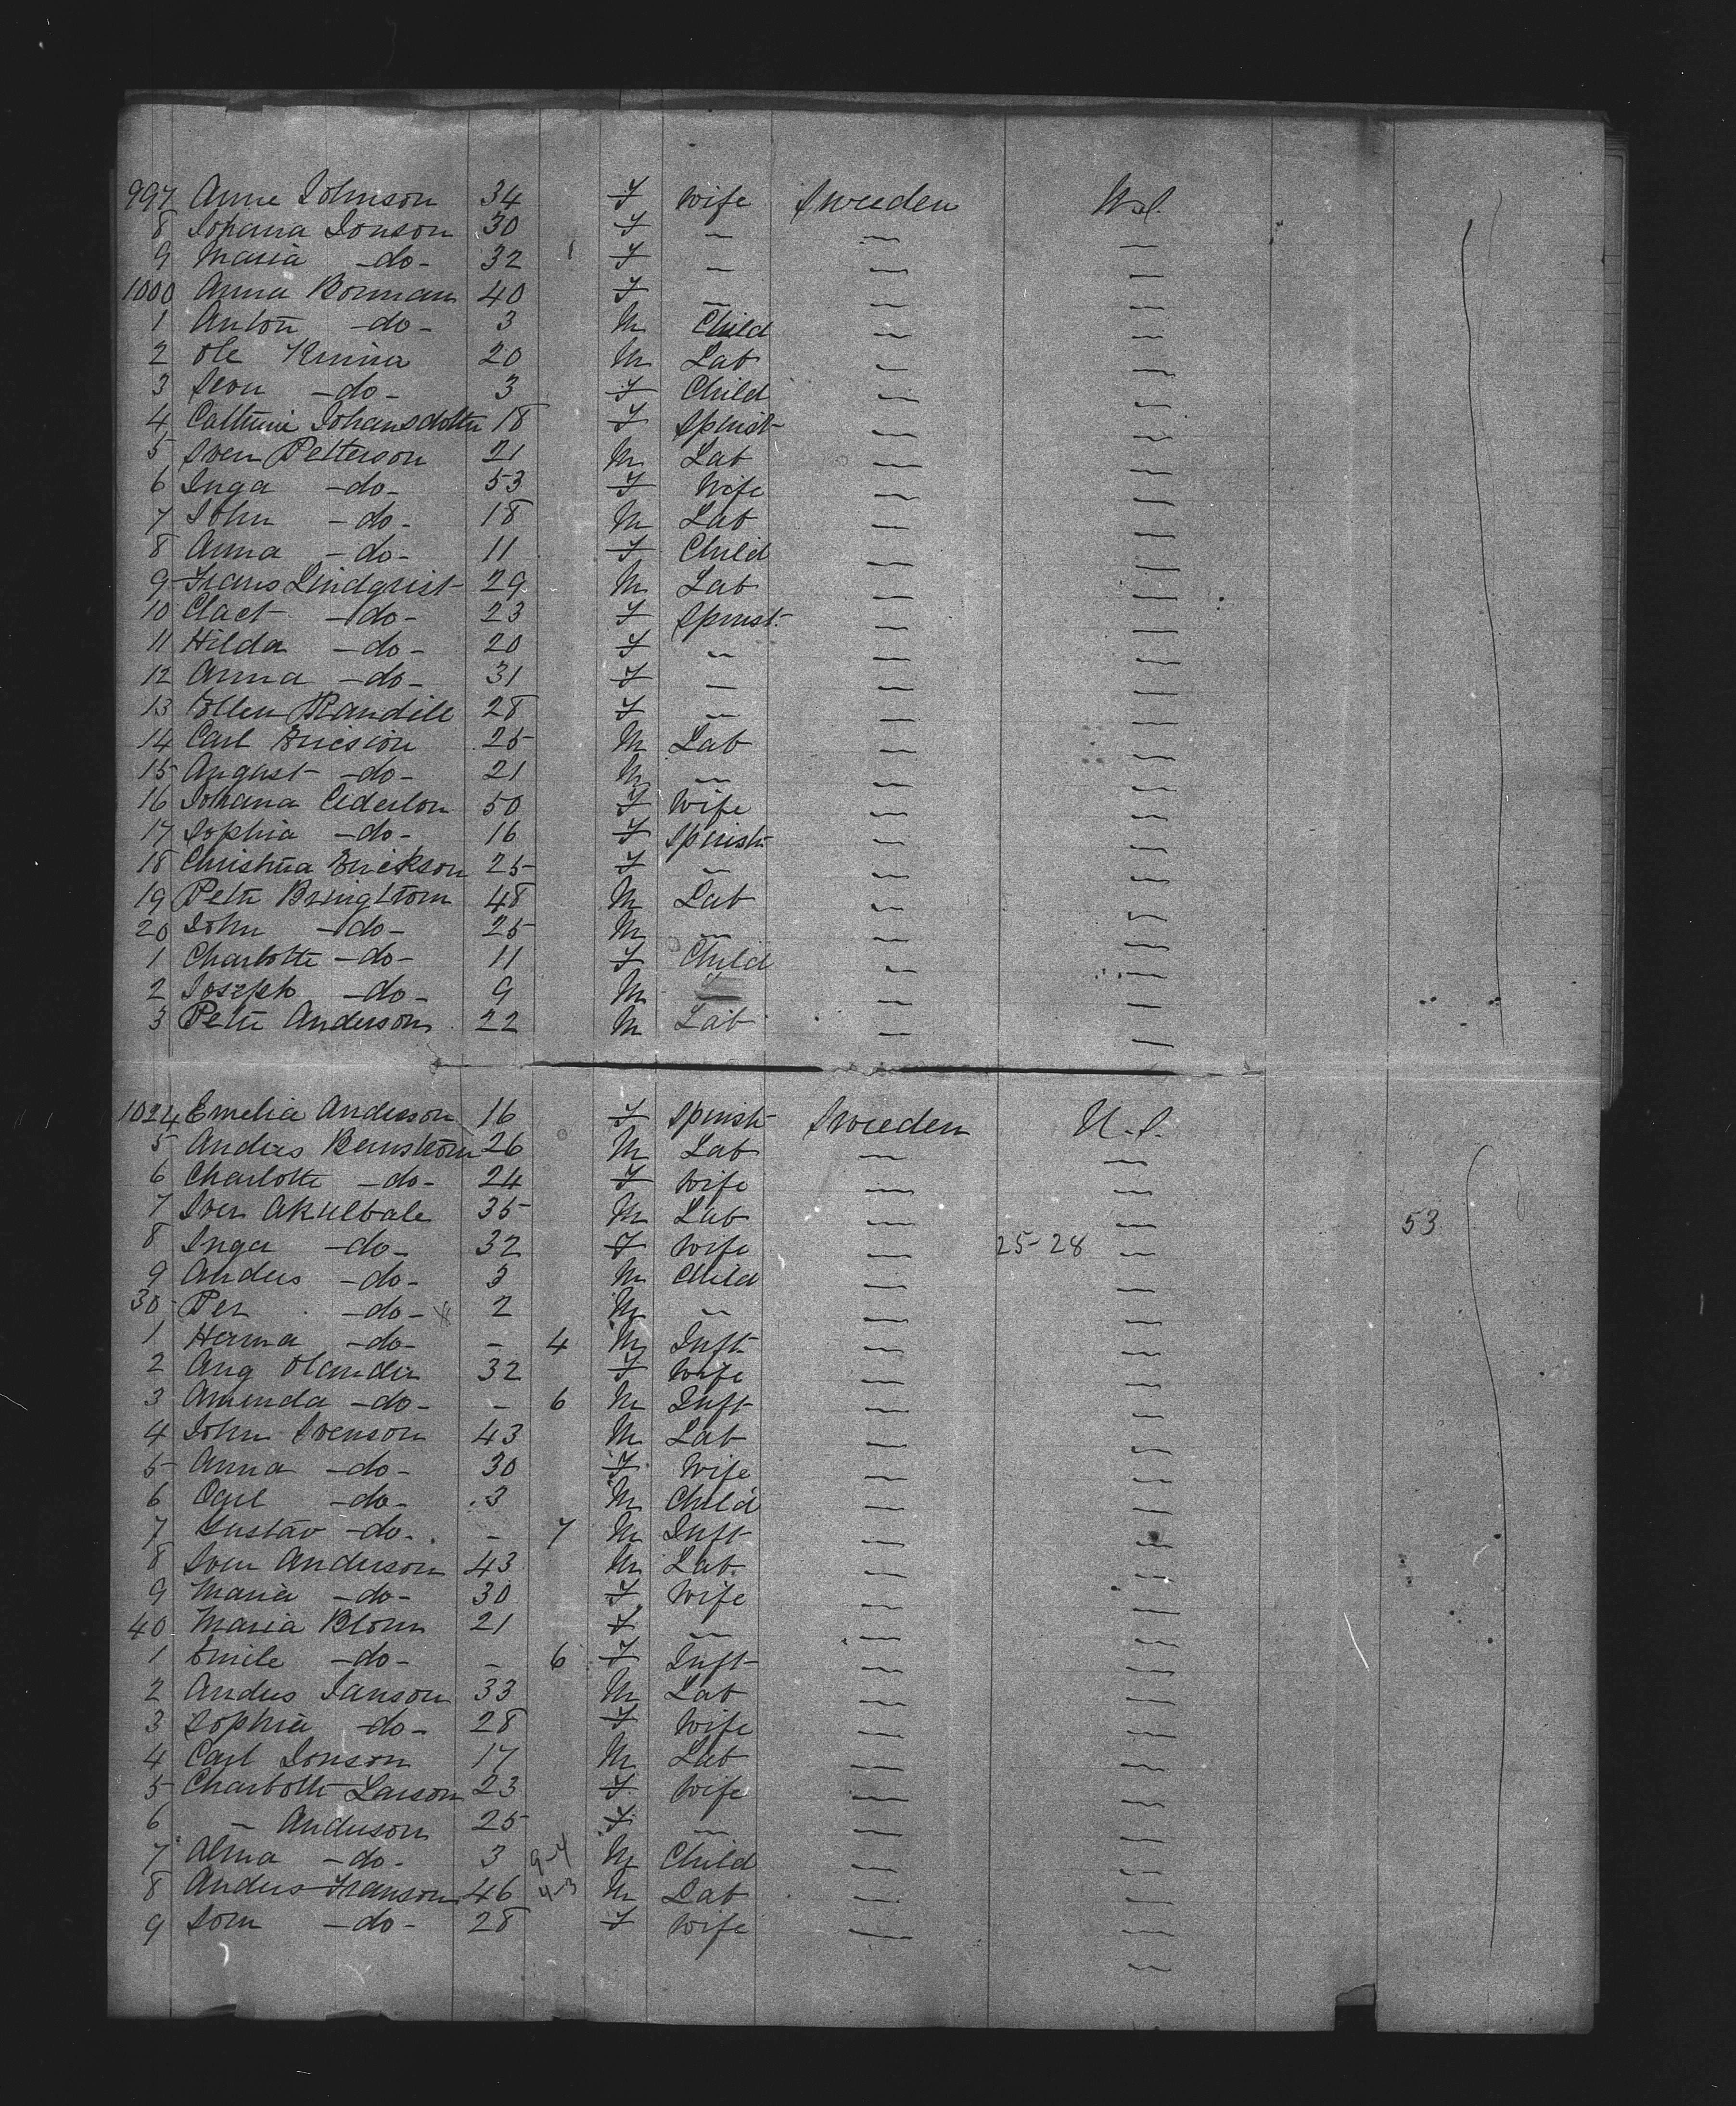 997 Anna Johnson 34 F Wife Sweden U.S.
8 Johana Jonson 30 F — — —
9 Maria -do- 32 F — — —
1000 Anna Borman 40 F — — —
1 Anton -do- 3 M Child — —
2 Ole 20 M Lab — —
3 -do- 3 F Child — —
4 Johansdotter 18 F Spinst — —
5 Sven Petterson 21 M Lab — —
6 Inga -do- 53 F Wife — —
7 John -do- 18 M Lab — —
8 Anna -do- 11 F Child — —
9 Frans Lindqvist 29 M Lab — —
10 Claet -do- 23 F Spinst. — —
11 Hilda -do- 20 F — — —
12 Anna -do- 31 F — — —
13 Ellen 28 F — — —
14 Carl Ericsion 25 M Lab — —
15 August -do- 21 M — — —
16 Johana 50 F Wife — —
17 Sophia -do- 16 F Spinst — —
18 Christina Erickson 25 F — — —
19 Petr 48 M Lab — —
20 John -do- 25 M — — —
1 Charlotte -do- 11 F Child — —
2 Joseph -do- 9 M — — —
3 Petr Anderson 22 M Lab — —
1024 Emelia Anderson 16 F Spinst Sweden U.S.
5 Anders Bernstrom 26 M Lab — —
6 Charlotte -do- 24 F Wife — —
7 Sven Akulbale 35 M Lab — — 53
8 Inga -do- 32 F Wife — 25-28 —
9 Anders -do- 3 M Child — —
30 Per -do- 2 M — — —
1 Herma -do- - 4 M Inft — —
2 Aug Olander 32 F Wife — —
3 Amenda -do- - 6 M Inft — —
4 John Svenson 43 M Lab — —
5 Anna -do- 30 F Wife — —
6 Carl -do- 3 M Child — —
7 Gustav -do- - 7 M Inft — —
8 Sven Anderson 43 M Lab — —
9 Maria -do- 30 F Wife — —
40 Maria Blom 21 F — — —
1 Emile -do- - 6 F Inft — —
2 Anders Janson 33 M Lab — —
3 Sophia -do- 28 F Wife — —
4 Carl Jonson 17 M Lab — —
5 Charlotte Larson 23 F Wife — —
6 - Anderson 25 F — — —
7 Alma -do- 3 9-4 M Child — —
8 Anders Franson 46 4-3 M Lab — —
9 -do- 28 F Wife — —